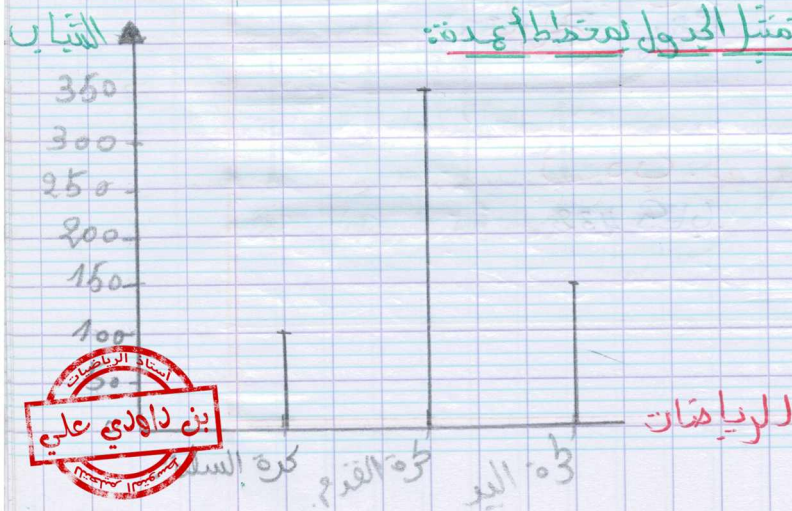 تمثيل الجدول بمخطط أعمدة:
الشباب
350
300
250
200
150
100
50
الرياضات
كرة السلة
كرة القدم
كرة اليد
أستاذ الرياضيات
بن داودي علي
للتعليم المتوسط